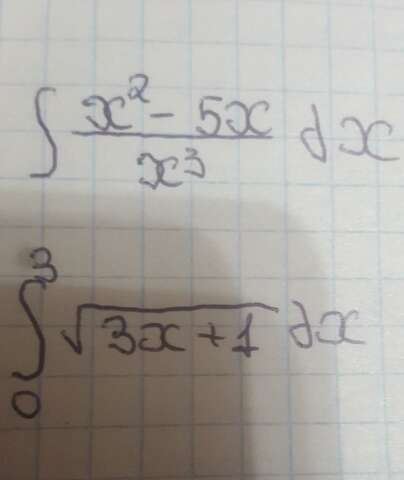 ∫ (x² - 5x)/x³ dx
∫₀³ √(3x+1) dx